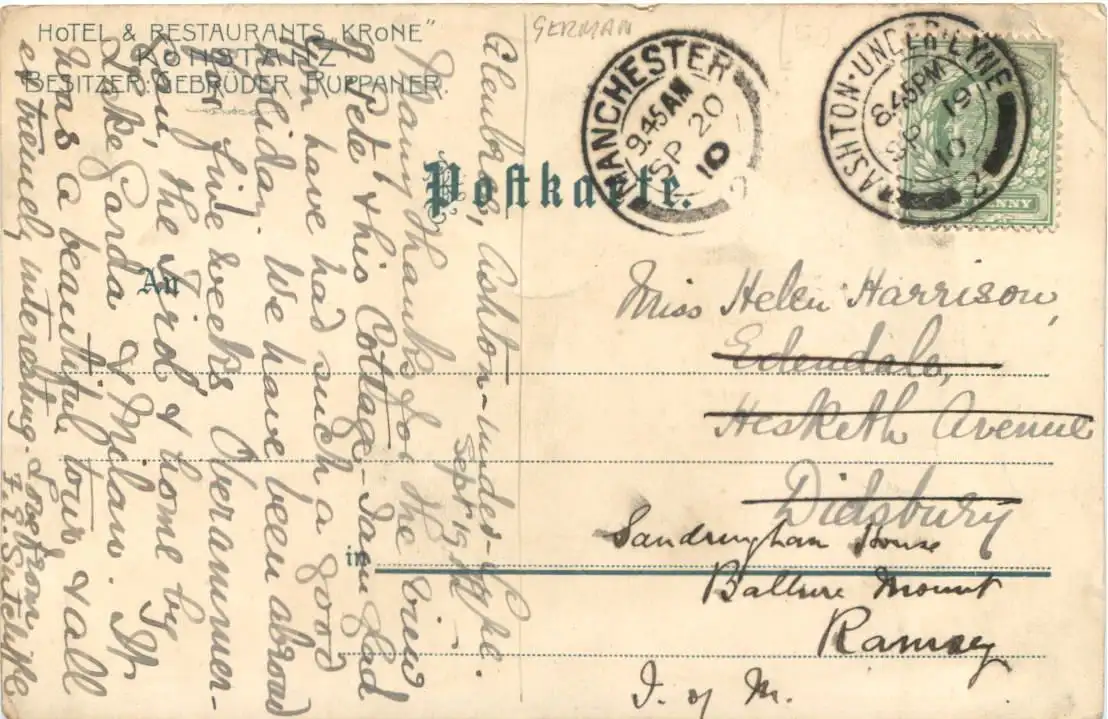 HOTEL & RESTAURANTS „KRONE"
KONSTANZ
BESITZER: GEBRÜDER RUPPANER.
GERMAN
MANCHESTER
9.45AM
SP 20
10
2
ASHTON-UNDER-LYNE
8.45PM
SP 19
10
2
PENNY
Postkarte.
An
in
Glenbrae, Ashton-under-Lyne.
Sept 19
Many thanks for the view
of Pete & his Cottage. I am glad
you have had such a good
holiday. We have been abroad
for five weeks, Oberammer-
gau, the Tirol, & home by
Lake Garda & Milan. It
was a beautiful tour & all
extremely interesting. Love from
F. E. Sutcliffe
Miss Helen Harrison,
Edendale,
Hesketh Avenue
Didsbury
Sandringham House
Ballure Mount
Ramsey
I. of M.